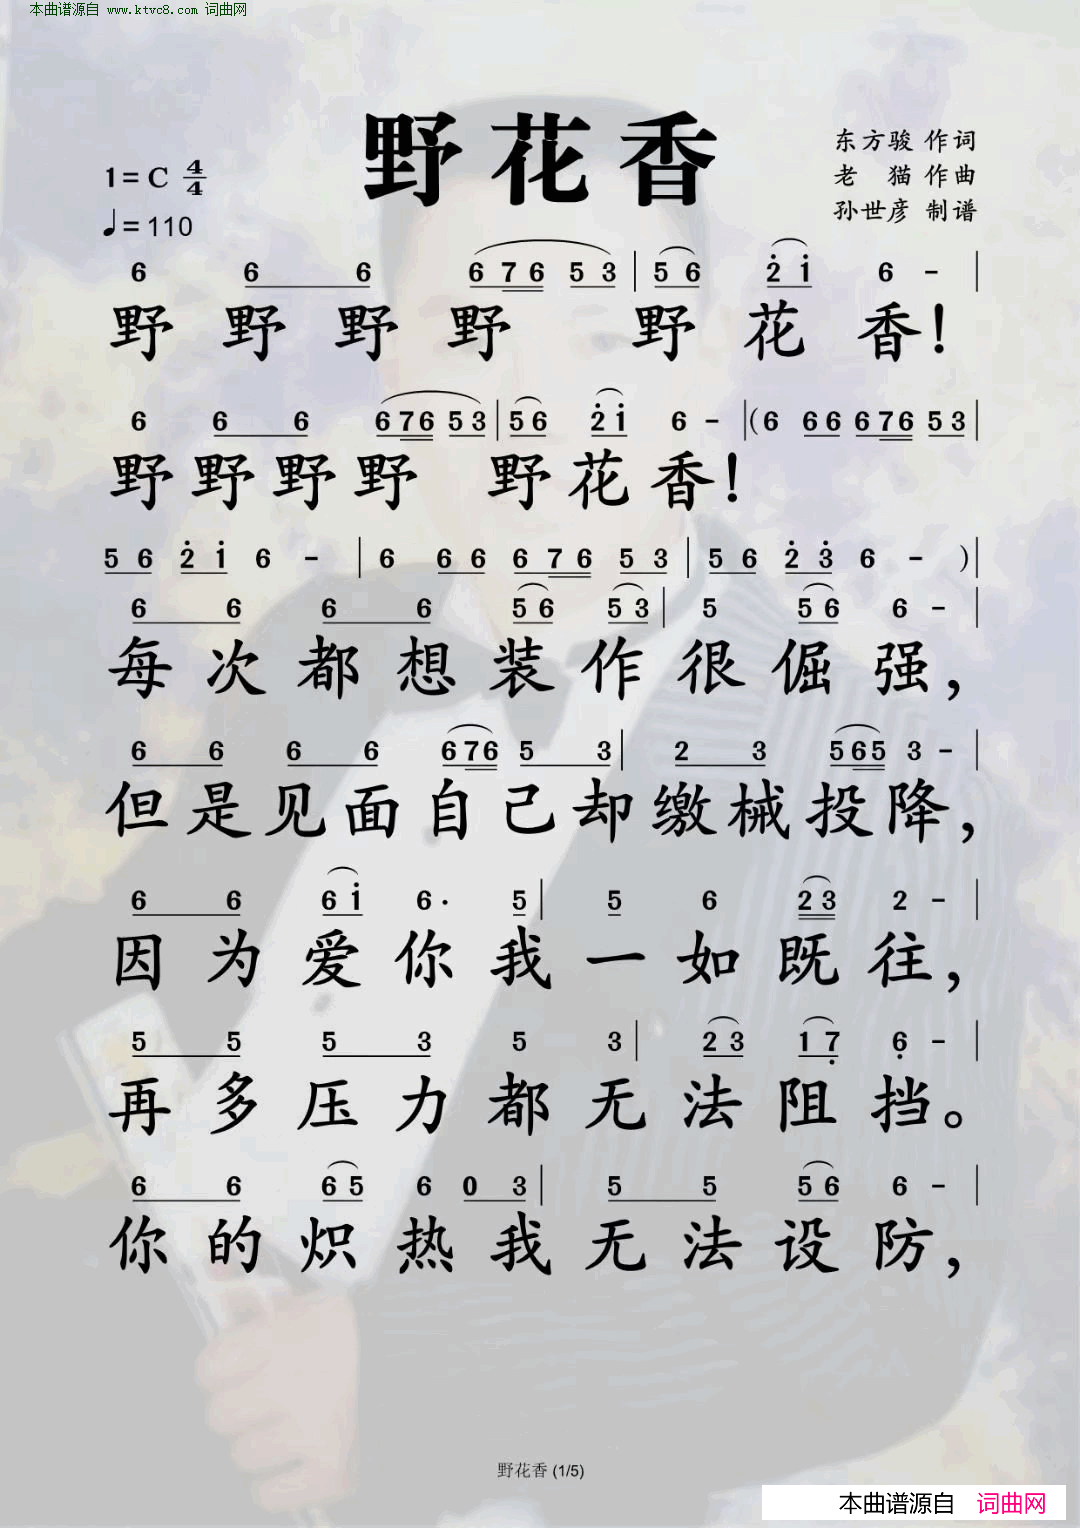 本曲谱源自 www.ktvc8.com 词曲网
野花香
东方骏 作词
1=C 4/4
老 猫 作曲
孙世彦 制谱
♩=110
6 6 6 6 7 6 5 3 | 5 6 2̇ 1̇ 6 - |
野 野 野 野 野 花 香！
6 6 6 6 7 6 5 3 | 5 6 2̇ 1̇ 6 - |(6 6 6 6 7 6 5 3 |
野 野 野 野 野 花 香！
5 6 2̇ 1̇ 6 - | 6 6 6 6 7 6 5 3 | 5 6 2̇ 3̇ 6 - )|
6 6 6 6 5 6 5 3 | 5 5 6 6 - |
每 次 都 想 装 作 很 倔 强，
6 6 6 6 6 7 6 5 3 | 2 3 5 6 5 3 - |
但 是 见 面 自 己 却 缴 械 投 降，
6 6 6 1̇ 6· 5 | 5 6 2 3 2 - |
因 为 爱 你 我 一 如 既 往，
5 5 5 3 5 3 | 2 3 1 7̣ 6̣ - |
再 多 压 力 都 无 法 阻 挡。
6 6 6 5 6 0 3 | 5 5 5 6 6 - |
你 的 炽 热 我 无 法 设 防，
野花香 (1/5)
本曲谱源自 词曲网